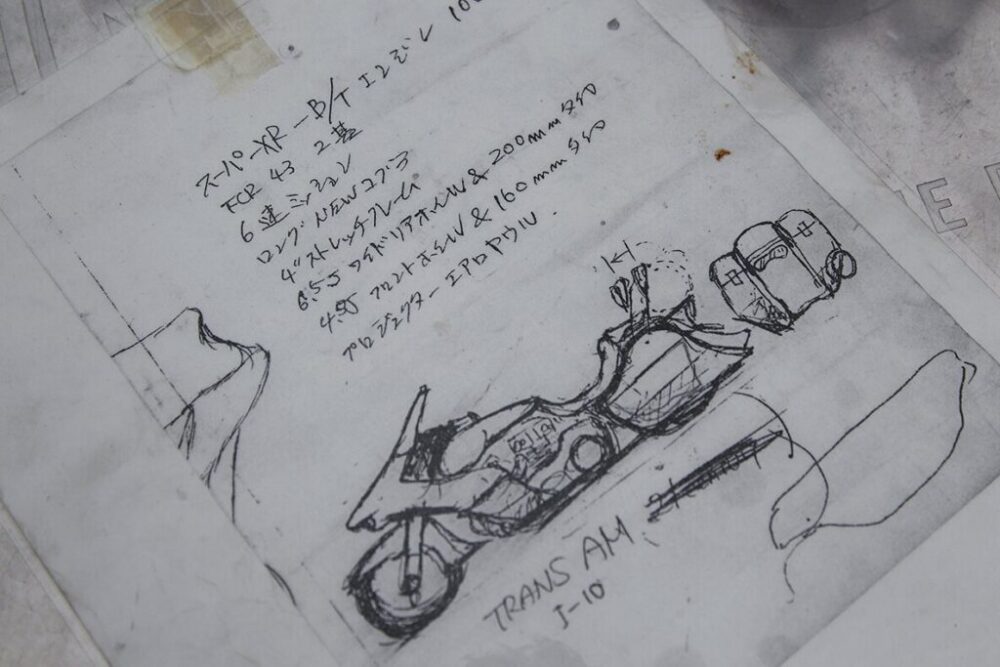 スーパーXR-B/T エンジン 100
FCR 43 2基
6速ミッション
ロング NEWコブラ
4"ストレッチフレーム
6.5J ワイドリアホイル & 200mmタイヤ
4.5J フロントホイル & 160mmタイヤ
プロジェクター エアロカウル.
TRANS AM
I-10